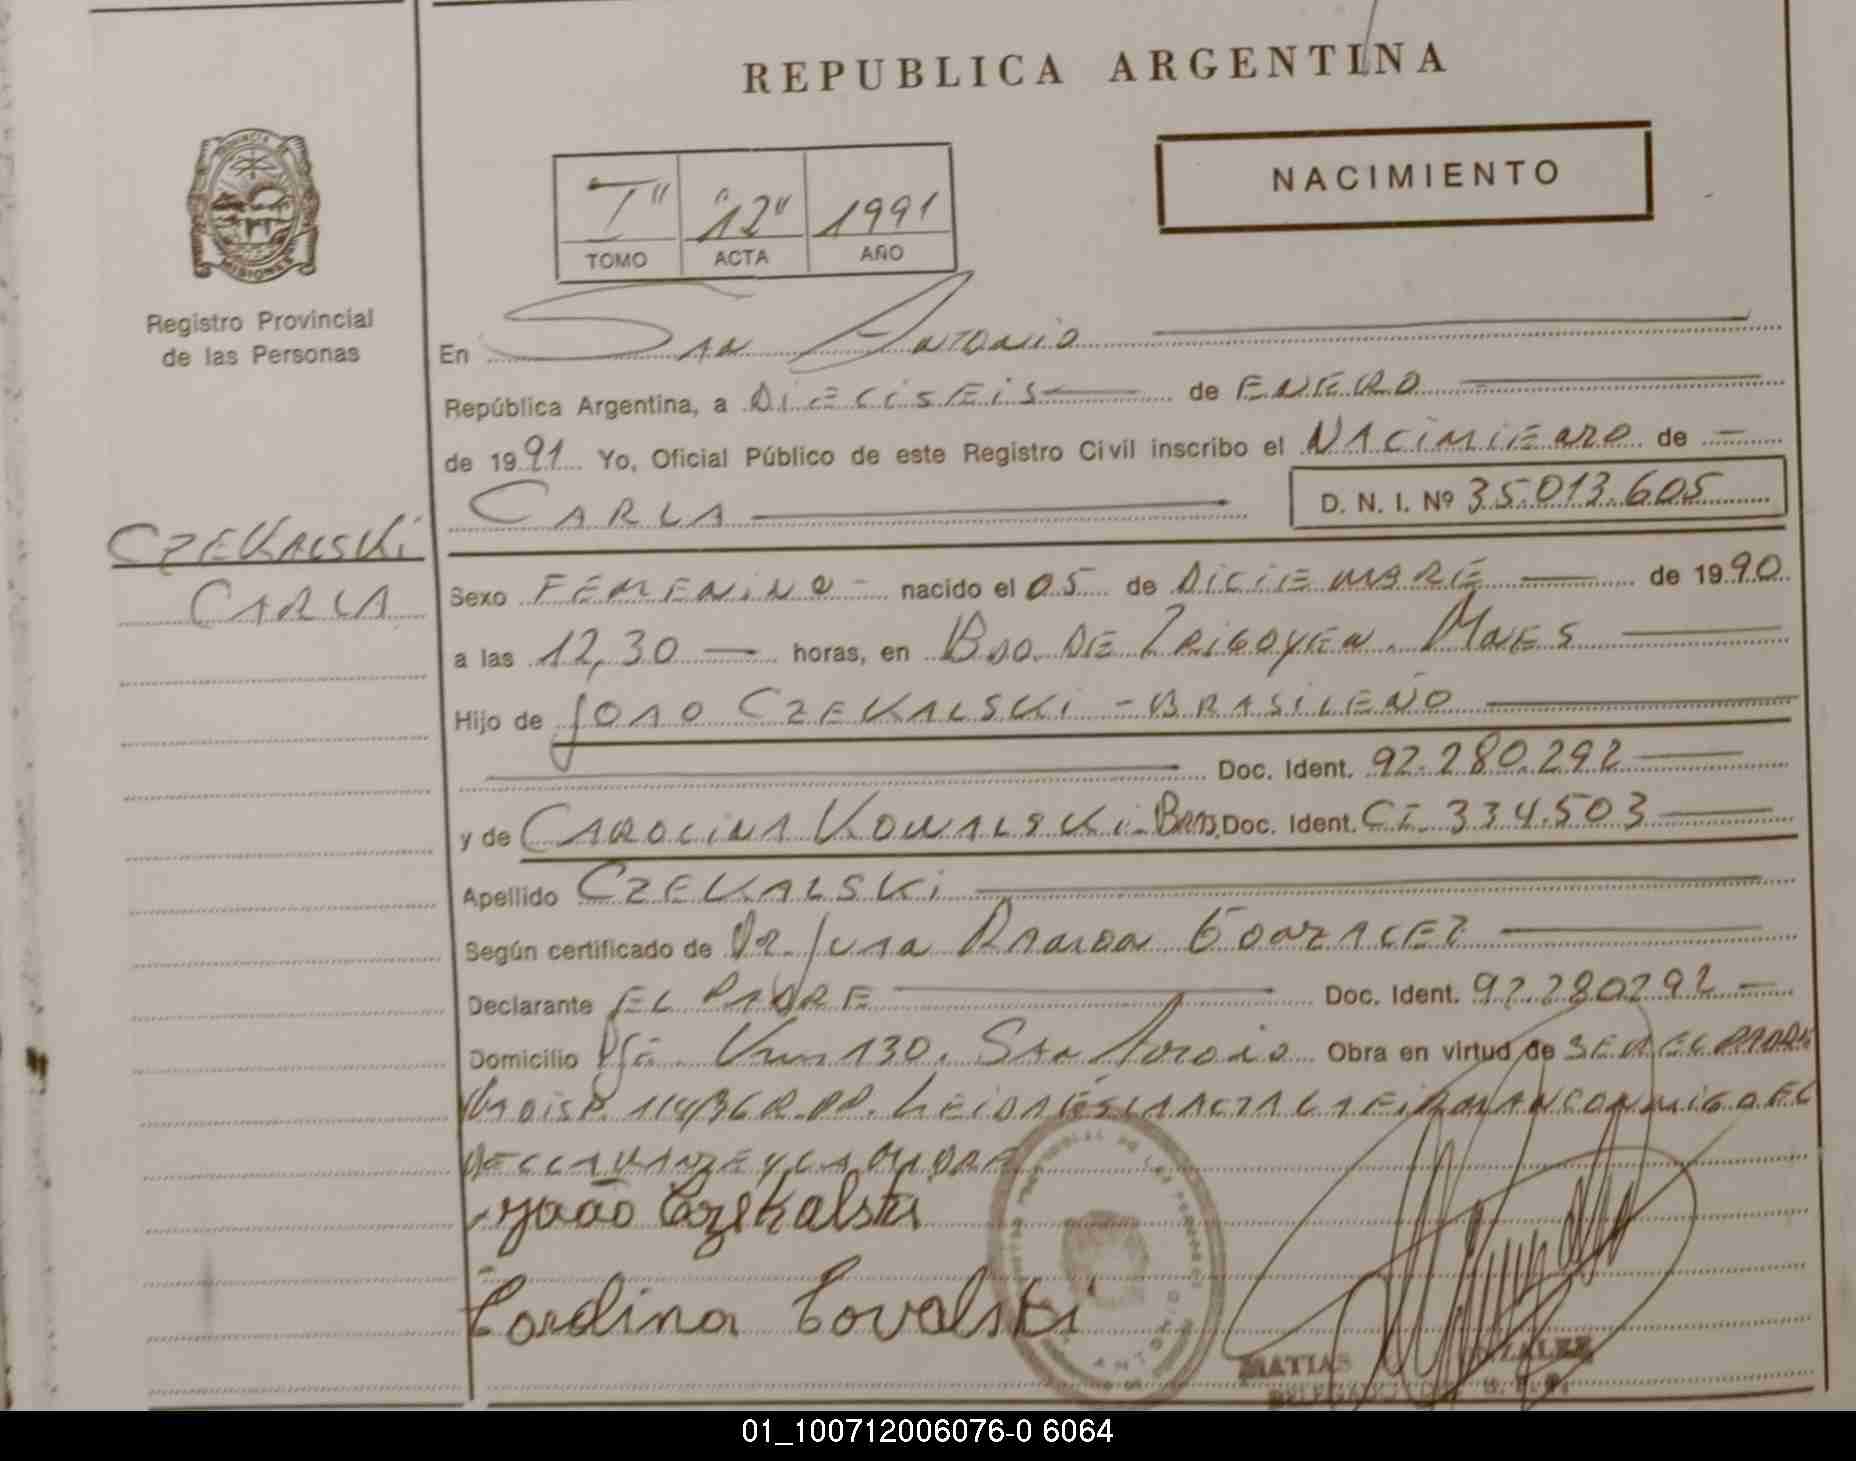 REPUBLICA ARGENTINA
PROVINCIA DE
MISIONES
Registro Provincial
de las Personas
NACIMIENTO
"I" "12" 1991
TOMO ACTA AÑO
En San Antonio
República Argentina, a DIECISEIS de ENERO
de 1991 Yo, Oficial Público de este Registro Civil inscribo el NACIMIENTO de
CARLA D. N. I. Nº 35.013.605
CZEKALSKI
CARLA
Sexo FEMENINO nacido el 05 de DICIEMBRE de 1990
a las 12,30 horas, en Bdo. DE IRIGOYEN. MNES
Hijo de JOAO CZEKALSKI - BRASILEÑO
Doc. Ident. 92.280.292
y de CAROLINA KOWALSKI - BRAS. Doc. Ident. CI. 334.503
Apellido CZEKALSKI
Según certificado de Dr. Juan Ramon
Declarante EL PADRE Doc. Ident. 92.280292
Domicilio Km 130. San Antonio Obra en virtud de SER EL PADRE
DISP. 114/86 R.PP. LEIDA ESTA ACTA LA FIRMAN CONMIGO EL
DECLARANTE Y LA MADRE
João Czekalski
Carolina Covalski
MATIAS GONZALEZ
01_100712006076-0 6064